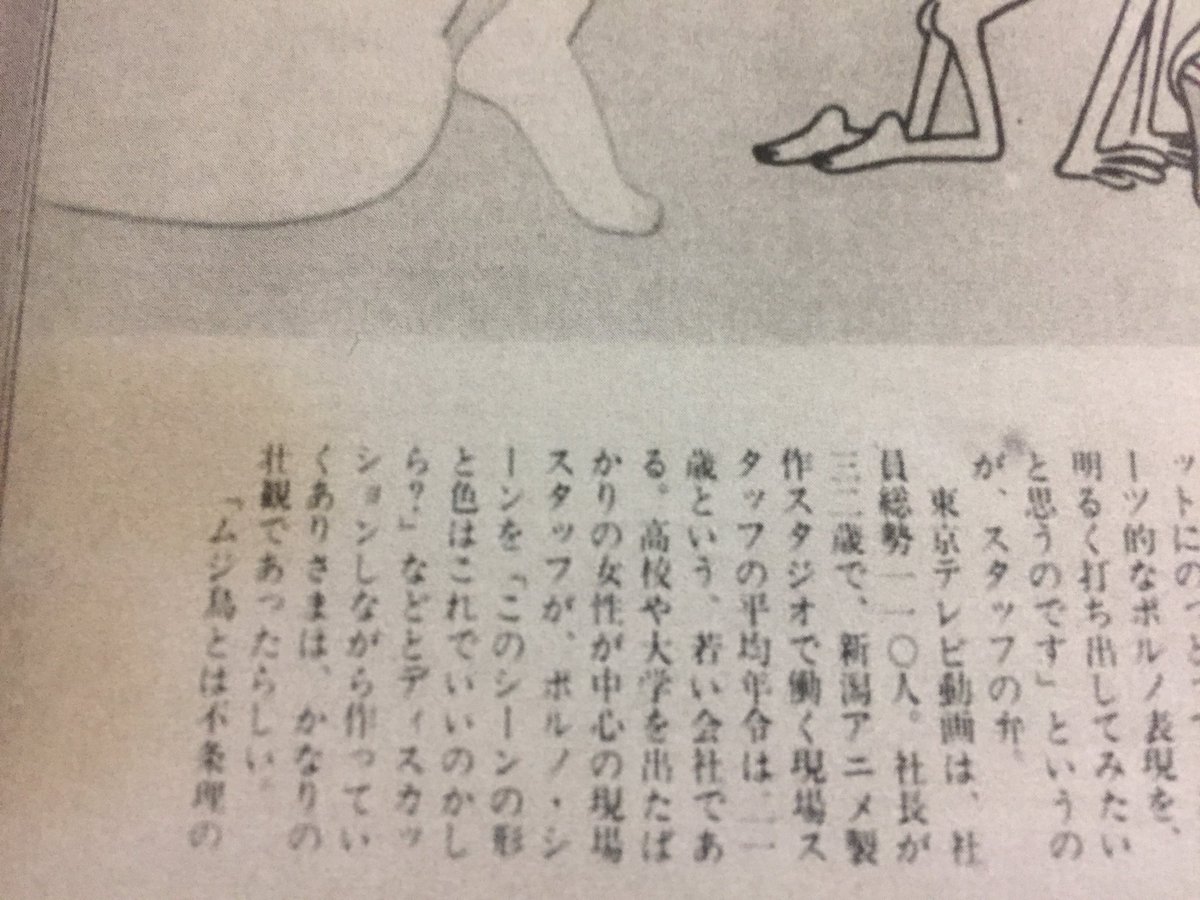 ーツ的なポルノ表現を、
明るく打ち出してみたい
と思うのです」というの
が、スタッフの弁。
東京テレビ動画は、社
員総勢一一〇人。社長が
三二歳で、新潟アニメ製
作スタジオで働く現場ス
タッフの平均年令は二一
歳という、若い会社であ
る。高校や大学を出たば
かりの女性が中心の現場
スタッフが、ポルノ・シ
ーンを「このシーンの形
と色はこれでいいのかし
ら?」などとディスカッ
ションしながら作ってい
くありさまは、かなりの
壮観であったらしい。
「ムジ鳥とは不条理の